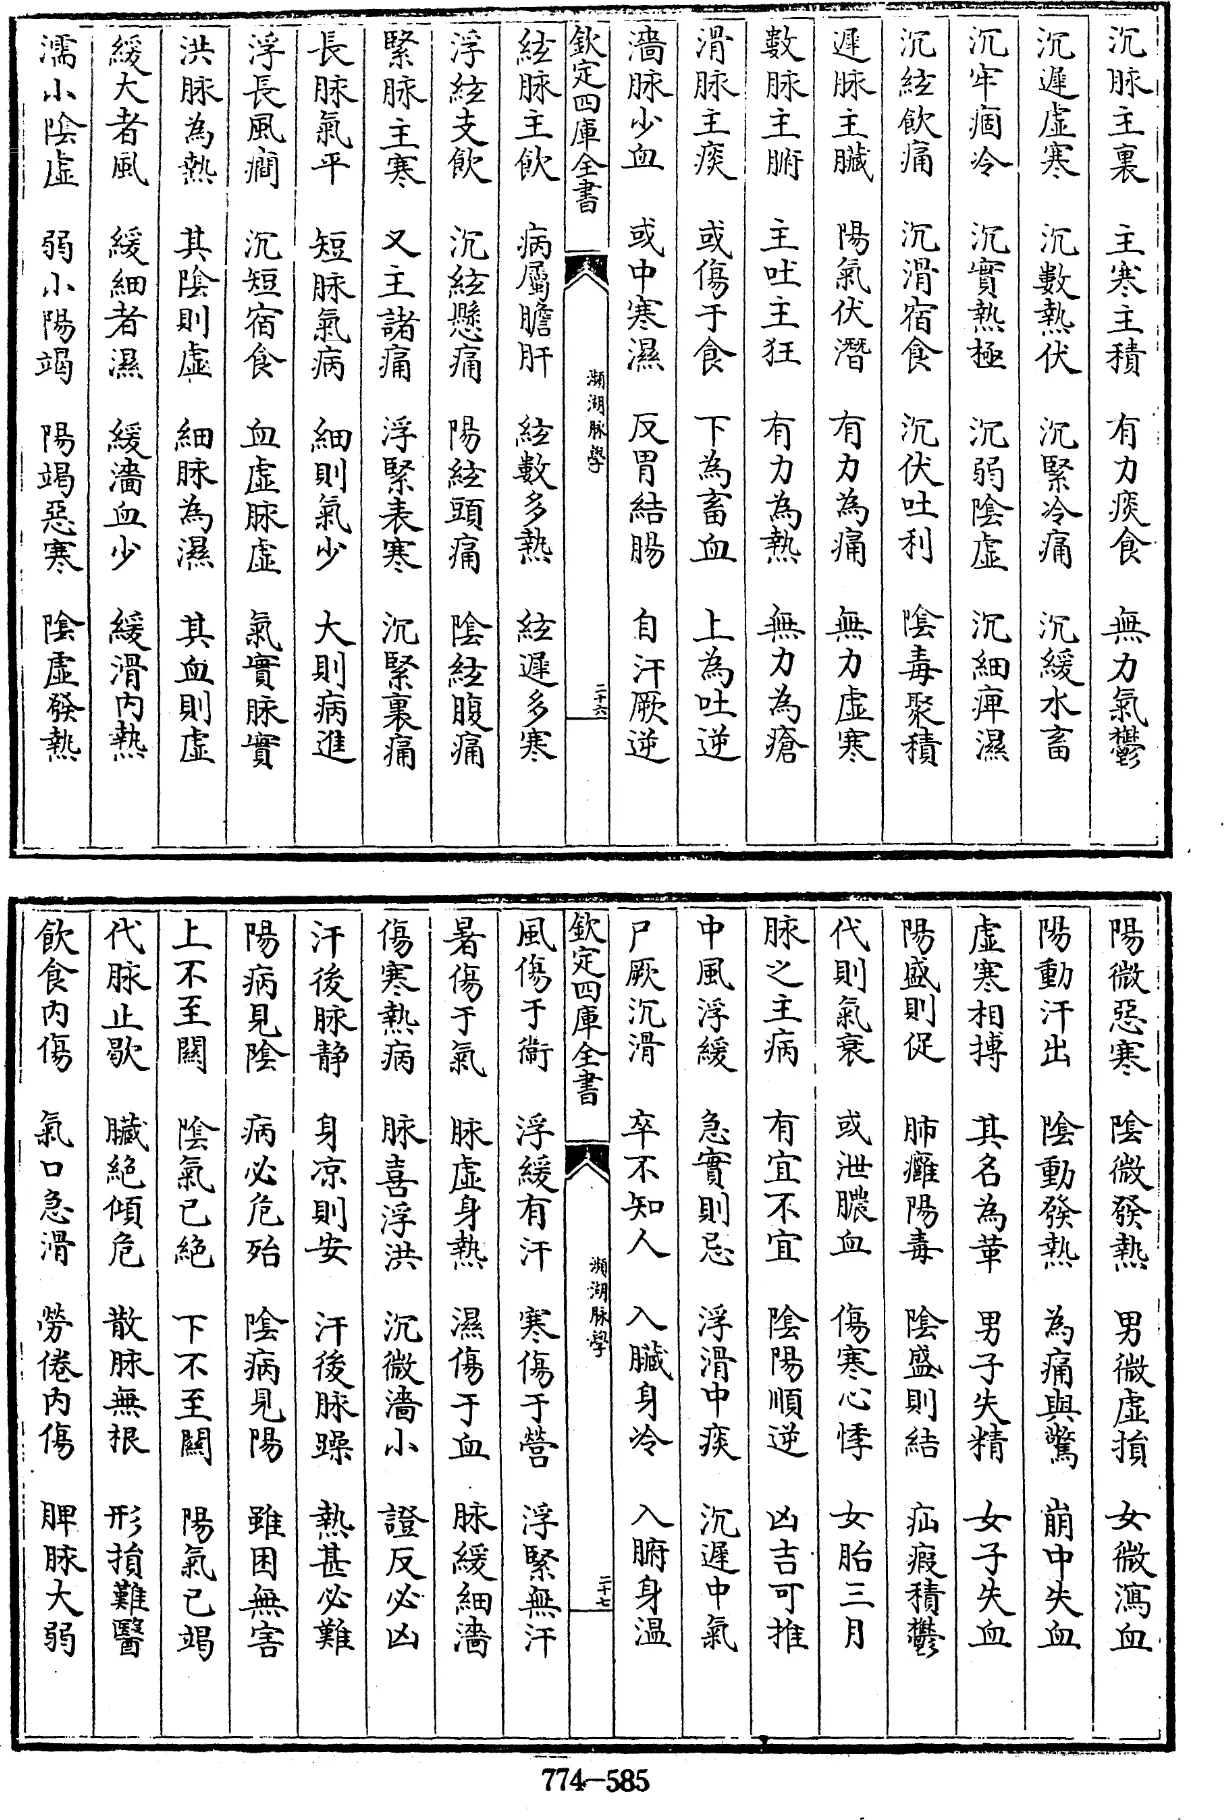 沉脉主裏　主寒主積　有力痰食　無力氣鬱
沉遲虛寒　沉數熱伏　沉緊冷痛　沉緩水畜
沉牢痼冷　沉實熱極　沉弱陰虛　沉細痺濕
沉絃飲痛　沉滑宿食　沉伏吐利　陰毒聚積
遲脉主臟　陽氣伏潛　有力為痛　無力虛寒
數脉主腑　主吐主狂　有力為熱　無力為瘡
滑脉主痰　或傷于食　下為畜血　上為吐逆
濇脉少血　或中寒濕　反胃結腸　自汗厥逆
欽定四庫全書　瀕湖脉學　二十六
絃脉主飲　病屬膽肝　絃數多熱　絃遲多寒
浮絃支飲　沉絃懸痛　陽絃頭痛　陰絃腹痛
緊脉主寒　又主諸痛　浮緊表寒　沉緊裏痛
長脉氣平　短脉氣病　細則氣少　大則病進
浮長風癎　沉短宿食　血虛脉虛　氣實脉實
洪脉為熱　其陰則虛　細脉為濕　其血則虛
緩大者風　緩細者濕　緩濇血少　緩滑內熱
濡小陰虛　弱小陽竭　陽竭惡寒　陰虛發熱
陽微惡寒　陰微發熱　男微虛損　女微瀉血
陽動汗出　陰動發熱　為痛與驚　崩中失血
虛寒相搏　其名為革　男子失精　女子失血
陽盛則促　肺癰陽毒　陰盛則結　疝瘕積鬱
代則氣衰　或泄膿血　傷寒心悸　女胎三月
脉之主病　有宜不宜　陰陽順逆　凶吉可推
中風浮緩　急實則忌　浮滑中痰　沉遲中氣
尸厥沉滑　卒不知人　入臟身冷　入腑身溫
欽定四庫全書　瀕湖脉學　二十七
風傷于衛　浮緩有汗　寒傷于營　浮緊無汗
暑傷于氣　脉虛身熱　濕傷于血　脉緩細濇
傷寒熱病　脉喜浮洪　沉微濇小　證反必凶
汗後脉静　身凉則安　汗後脉躁　熱甚必難
陽病見陰　病必危殆　陰病見陽　雖困無害
上不至關　陰氣已絕　下不至關　陽氣已竭
代脉止歇　臟絕傾危　散脉無根　形損難醫
飲食內傷　氣口急滑　勞倦內傷　脾脉大弱
774-585